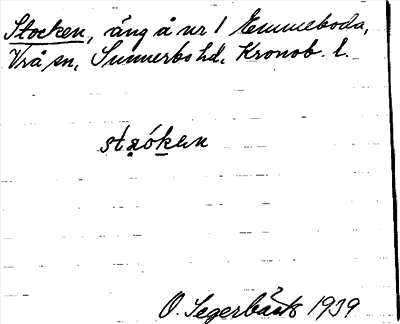 Stocken, äng å nr 1 Emmeboda,
Vrå sn, Sunnerbo hd, Kronob. l.
stąóken
O. Segerbäck 1939